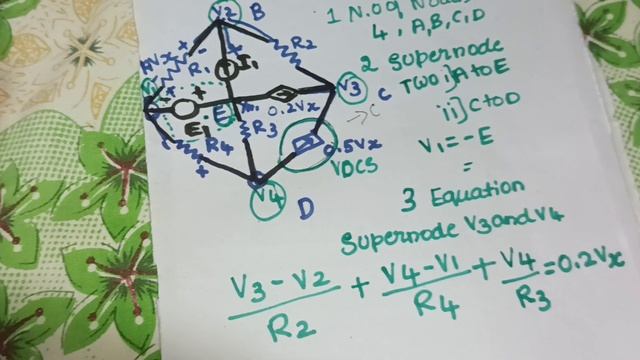 1 N.og Node
4, A,B,C,D
2 Supernode
Two i]A to E
ii] C to D
V1 = -E
=
3 Equation
Supernode V3 and V4
V3 - V2 / R2 + V4 - V1 / R4 + V4 / R3 = 0.2Vx
V2 B
Vx
R1
I1
R2
V3 C
→ C
E
0.2Vx
E1
R3
R4
0.5Vx
VDCS
V4
D